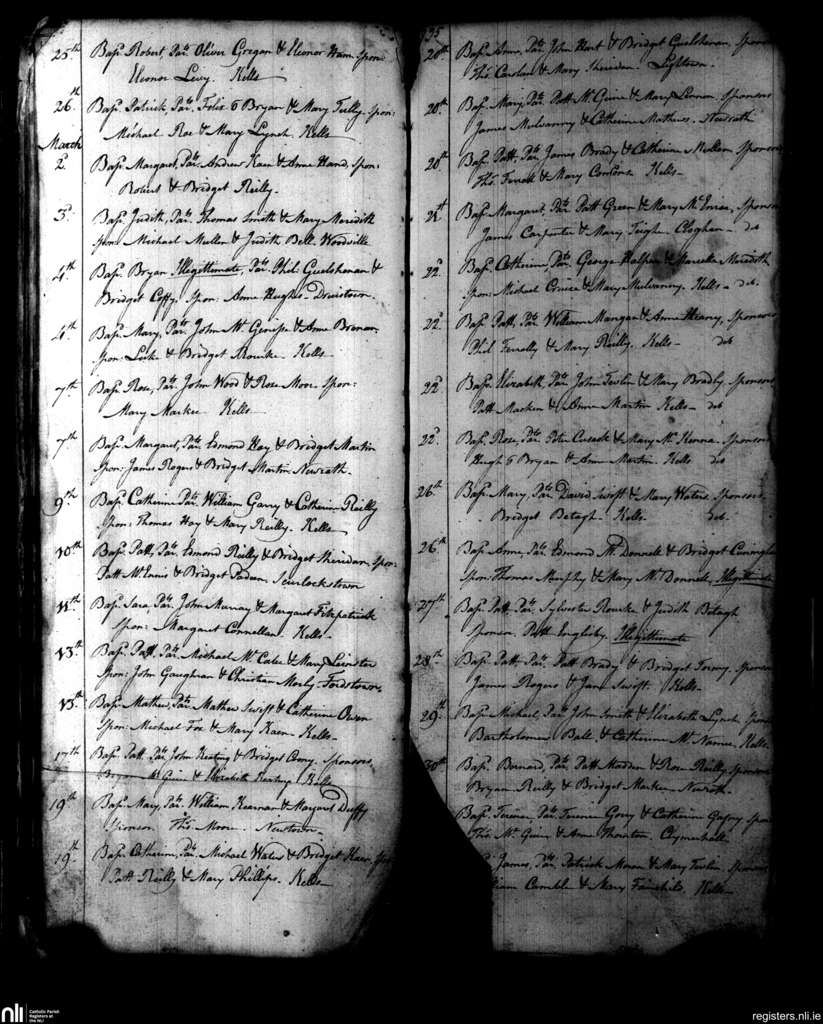 25th Bapd. Robert, Pats. Oliver Gregan & Eleonor Ham Spon:
Eleonor Levy. Kells
26th Bapd. Patrick, Pats. Felix O Bryan & Mary Tully. Spon:
Michael Roe & Mary Lynch. Kells
March
2d. Bapd. Margaret, Pats. Andrew Kaen & Anne Hand, Spon:
Robert & Bridget Reilly.
3d. Bapd. Judith, Pats. Thomas Smith & Mary Meridith
Spon: Michael Mullen & Judith Bell. Woodville
4th Bapd. Bryan Illegittimate, Pats. Phil Guelshenan &
Bridget Coffy. Spon: Anne Hughes
4th Bapd. Mary, Pats. John & Anne Brenan
Spon: Luke & Bridget Rourke. Kells.
7th Bapd. Rose, Pats. John Wood & Rose Moor. Spon:
Mary Markee Kells
7th Bapd. Margaret, Pats. Edmond Hay & Bridget Martin
Spon: James Rogers & Bridget Martin. Newrath.
9th Bapd. Catherine Pats. William Garry & Catherine Reilly
Spon: Thomas Hay & Mary Reilly. Kells
10th Bapd. Patt, Pats. Edmond Reilly & Bridget Sheridan. Spon:
Patt McEnnis & Bridget Scurlockstown
11th Bapd. Sara, Pats. John Murray & Margaret Fitzpatrick
Spon: Margaret Connellan. Kells.
13th Bapd. Patt. Pats. Michael McCabe & Mary Leinster
Spon: John Gaughran & Christian Fordstown
13th Bapd. Mathew, Pats. Mathew Swift & Catherine Owen
Spon: Michael Fox & Mary Kaen. Kells.
17th Bapd. Patt Pats. John Keating & Bridget Sponsors,
Bryan McGuire & Elizabeth Keating Kells
19th Bapd. Mary, Pats. William Kearnan & Margaret Duffy
Sponsor Thos. Moore. Newtown.
19th Bapd. Catherine, Pats. Michael Waters & Bridget Kaen
Patt Reilly & Mary Phillips. Kells
20th Bapd. Anne, Pats. John Hart & Bridget Guelshenan. Spon
Thos. Carolan & Mary Sheridan.
20th Bapd. Mary, Pats. Patt McGuire & Mary Lennon. Sponsors
James Mulvanny & Catherine Mathews. Newrath
20th Bapd. Patt, Pats. James Brady & Catherine Mullen Sponsors
Thos. Farrell & Mary Kells
21st Bapd. Margaret, Pats. Patt Green & Mary McEnroe, Sponsors
James Carpenter & Mary Teigh. Cloghan do
22d. Bapd. Catherine, Pats. George Halpin & Meredith
Spon: Michael Cruice & Mary Mulvanny. Kells
22d. Bapd. Patt, Pats. William Mangan & Anne Heany, Sponsors
Phil Fennelly & Mary Reilly. Kells
22d. Bapd. Elizabeth, Pats. John Tuslin & Mary Bradly. Sponsors
Patt Macken & Anne Martin Kells
22d. Bapd. Rose, Pats. Peter Cusack & Mary McKenna. Sponsors
Hugh O Bryan & Anne Martin. Kells
26th Bapd. Mary, Pats. David Swift & Mary Waters. Sponsors.
Bridget Betagh. Kells.
26th Bapd. Anne, Pats. Edmond McDonnell & Bridget
Spon: Thomas Murphy & Mary McDonnell. Illegittimate
27th Bapd. Patt, Pats. Sylvester Rourke & Judith Betagh
Sponsor. Patt Englisby. Illegittimate
28th Bapd. Patt, Pats. Patt Brady & Bridget Sponsors
James Rogers & Jane Swift. Kells.
29th Bapd. Michael, Pats. John Smith & Elizabeth Lynch Spon
Bartholomew Bell & Catherine McNamee. Kells
30th Bapd. Bernard, Pats. Patt Madden & Rose Reilly Sponsors
Bryan Reilly & Bridget Markee Newrath.
Bapd. Terence, Pats. Terence Gory & Catherine Spon
Thos. McGuire & Anne Thornton.
James, Pats. Patrick Moran & Mary Tuslin. Sponsors
& Mary Kells
nli Catholic Parish
Registers at
the NLI
registers.nli.ie